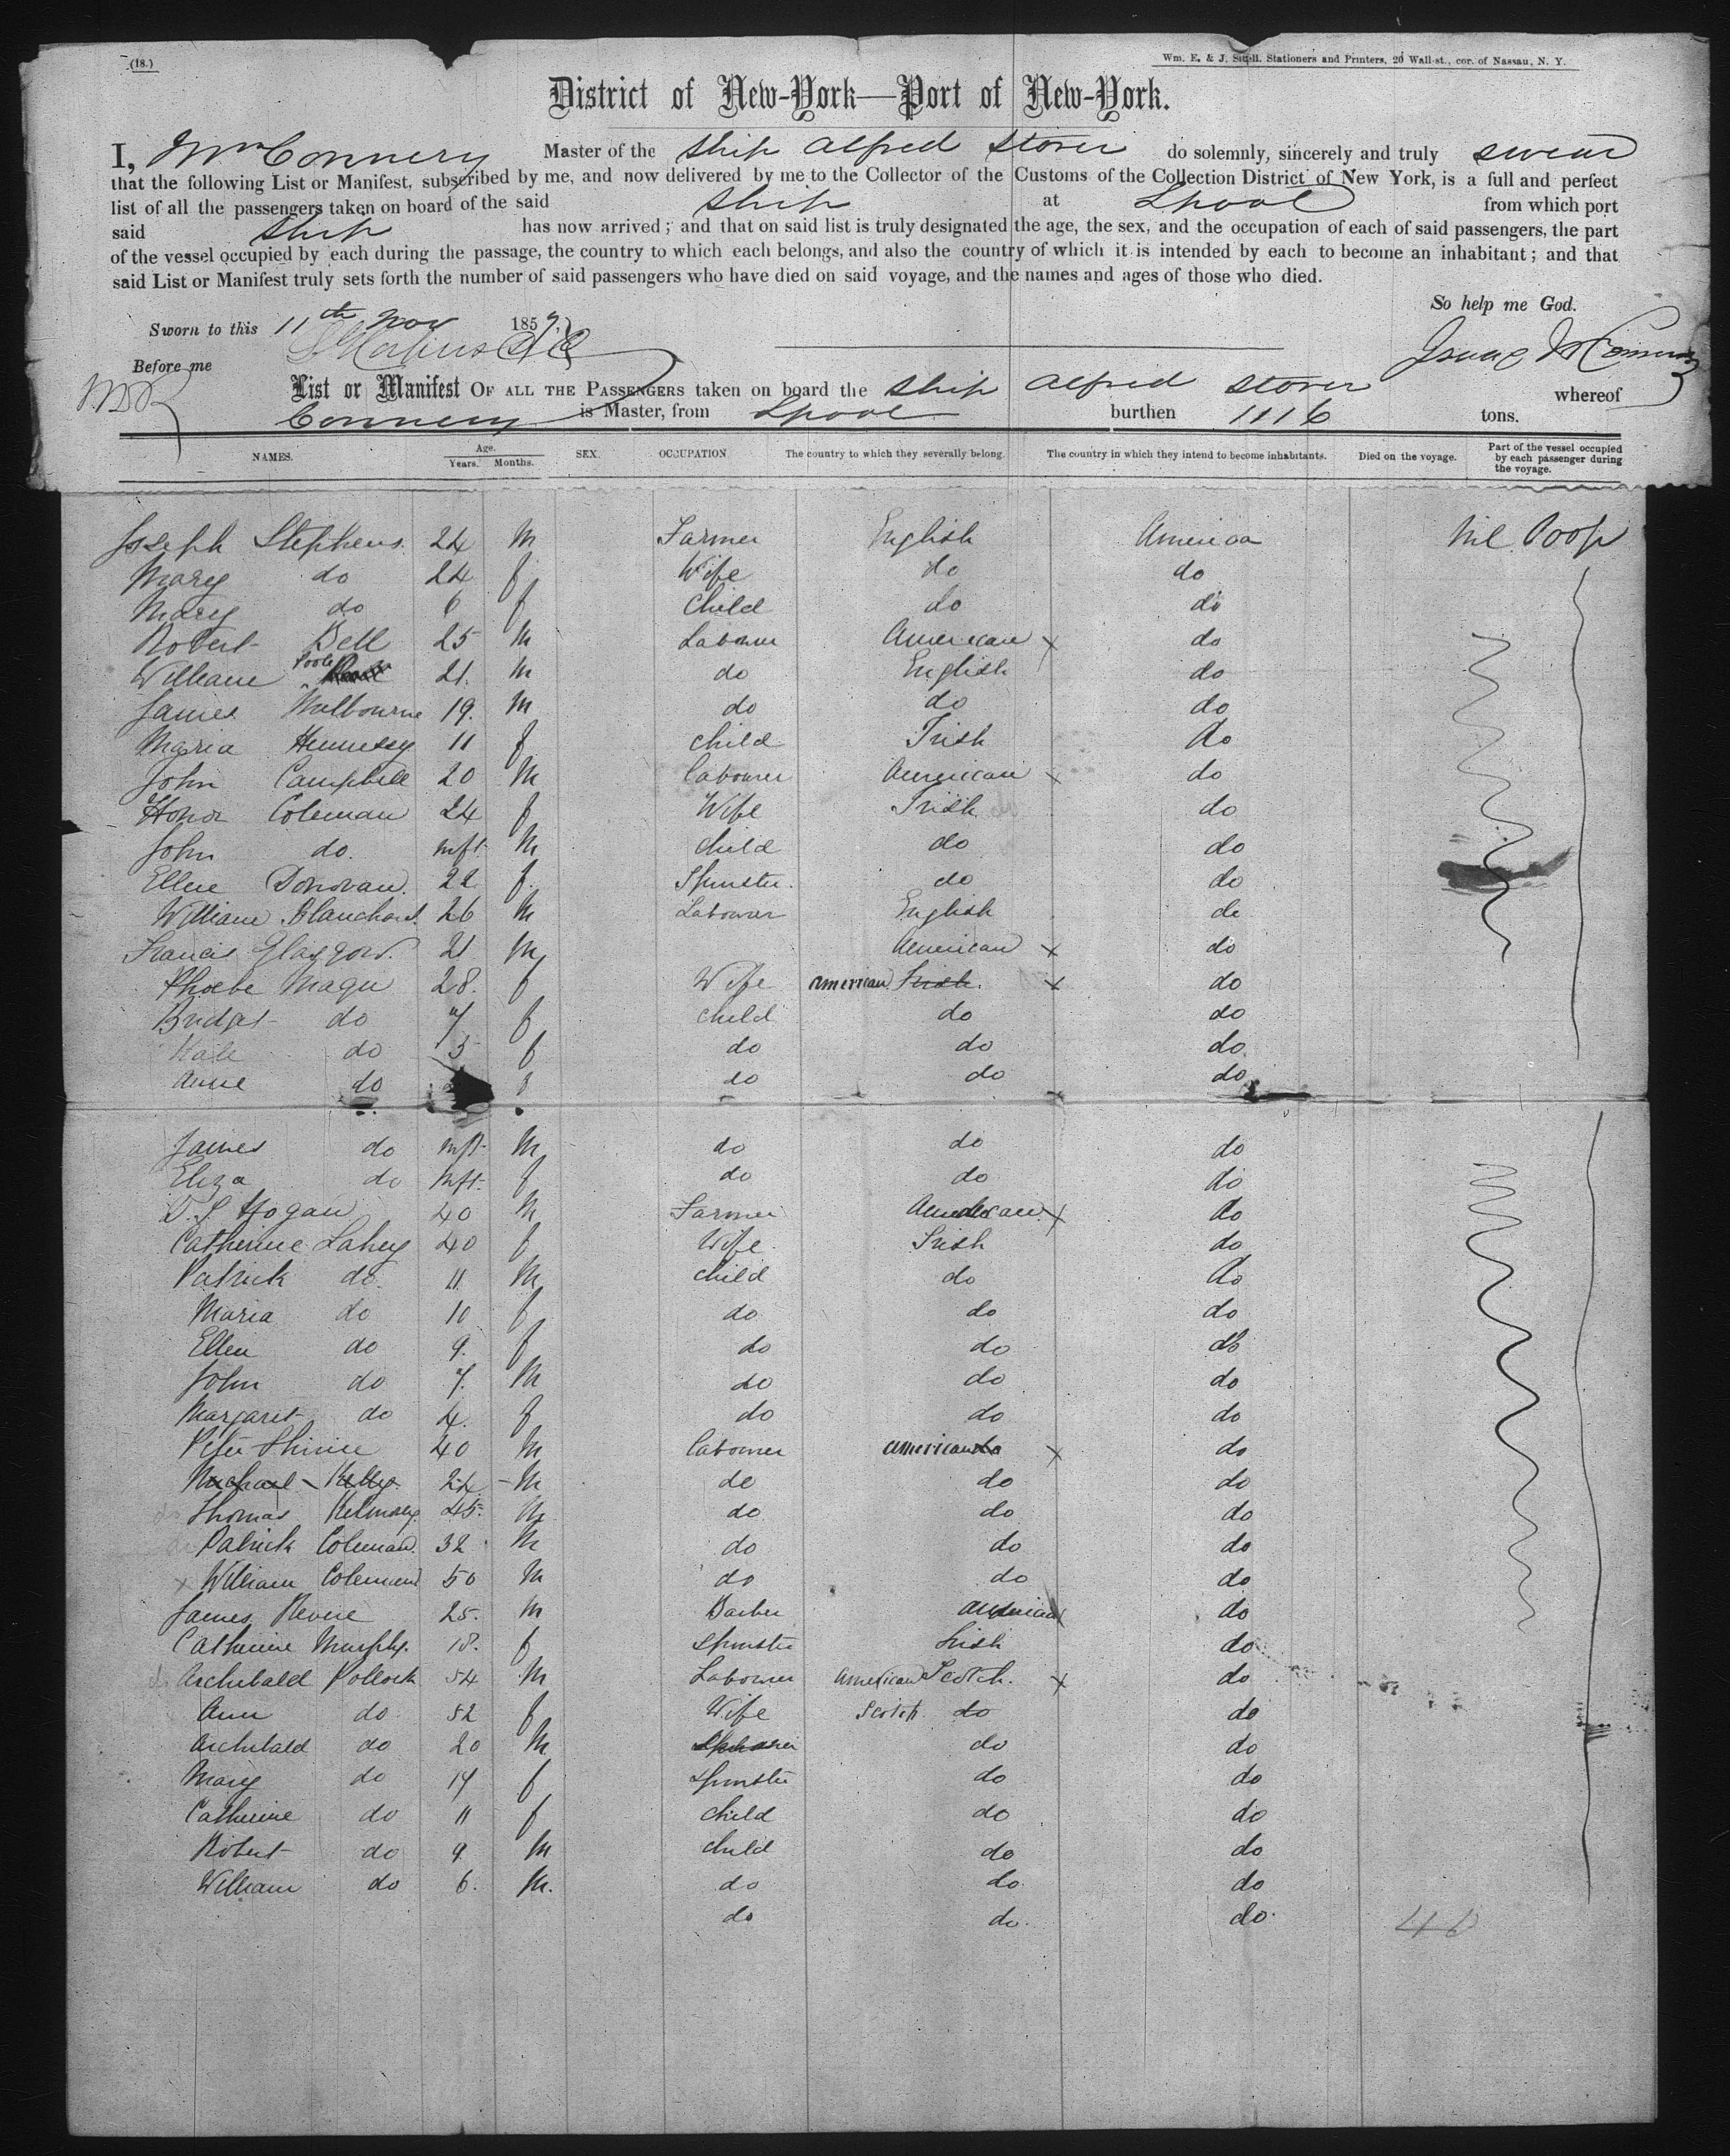 (18.)
Wm. E. & J. Sibell, Stationers and Printers, 20 Wall-st., cor. of Nassau, N. Y.
District of New-York—Port of New-York.
I, Wm Connery Master of the Ship Alfred Storer do solemnly, sincerely and truly swear
that the following List or Manifest, subscribed by me, and now delivered by me to the Collector of the Customs of the Collection District of New York, is a full and perfect
list of all the passengers taken on board of the said Ship at Lpool from which port
said Ship has now arrived; and that on said list is truly designated the age, the sex, and the occupation of each of said passengers, the part
of the vessel occupied by each during the passage, the country to which each belongs, and also the country of which it is intended by each to become an inhabitant; and that
said List or Manifest truly sets forth the number of said passengers who have died on said voyage, and the names and ages of those who died.
So help me God.
Sworn to this 11th Nov 1857,
Before me
List or Manifest OF ALL THE PASSENGERS taken on board the Ship Alfred Storer whereof
Connery is Master, from Lpool burthen 1116 tons.
NAMES. Age. Years. Months. SEX. OCCUPATION The country to which they severally belong. The country in which they intend to become inhabitants. Died on the voyage. Part of the vessel occupied by each passenger during the voyage.
Joseph Stephens. 24 M Farmer English America Nil Poop
Mary do 24 f Wife do do
Mary do 6 f Child do do
Robert Bell 25 M Labourer American x do
William Poole 21. M do English do
James Milbourne 19. M do do do
Maria Hennessy 11 f Child Irish do
John Campbell 20 M Labourer American x do
Honor Coleman 24 f Wife Irish do
John do. inft M Child do do
Ellen Donovan. 22 f. Spinster. do do
William Blanchard. 26 M Labourer English do
Francis Glasgow. 21 M American x do
Phoebe Magu 28. f Wife American Irish. x do
Bridget do 7 f Child do do
Kate do 5 f do do do
Anne do f do do do
James do inft M do do do
Eliza do inft. f do do do
Hogan 40 M Farmer American x do
Catherine Lahey 40 f Wife Irish do
Patrick do 11. M Child do do
Maria do 10 f do do do
Ellen do 9. f do do do
John do 7. M do do do
Margaret do 4. f do do do
Peter 40 M Labourer American do x do
Michael Kelly 24 M do do do
Thomas 45. M do do do
Patrick Coleman. 32 M do do do
x William Coleman 50 M do do do
James Revere 25. M Barber American x do
Catherine Murphy. 18. f Spinster Irish do
Archibald Pollock 54 M Labourer American Scotch. x do
Ann do 52 f Wife Scotch do do
Archibald do 20 M do do
Mary do 17 f Spinster do do
Catherine do 11 f Child do do
Robert do 9. M Child do do
William do 6. M. do do do
do do. do.